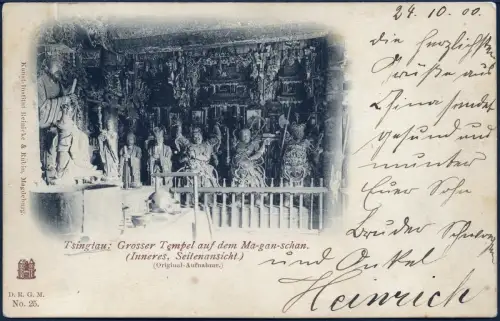 24. 10. 00.
die herzlichsten
Grüße aus
China sendet
gesund und
munter
Euer Sohn
Bruder Schwager
und Onkel
Heinrich
Kunst-Institut Reinicke & Rubin, Magdeburg.
Tsingtau: Grosser Tempel auf dem Ma-gan-schan.
(Inneres, Seitenansicht.)
(Original-Aufnahme.)
D. R. G. M.
No. 25.